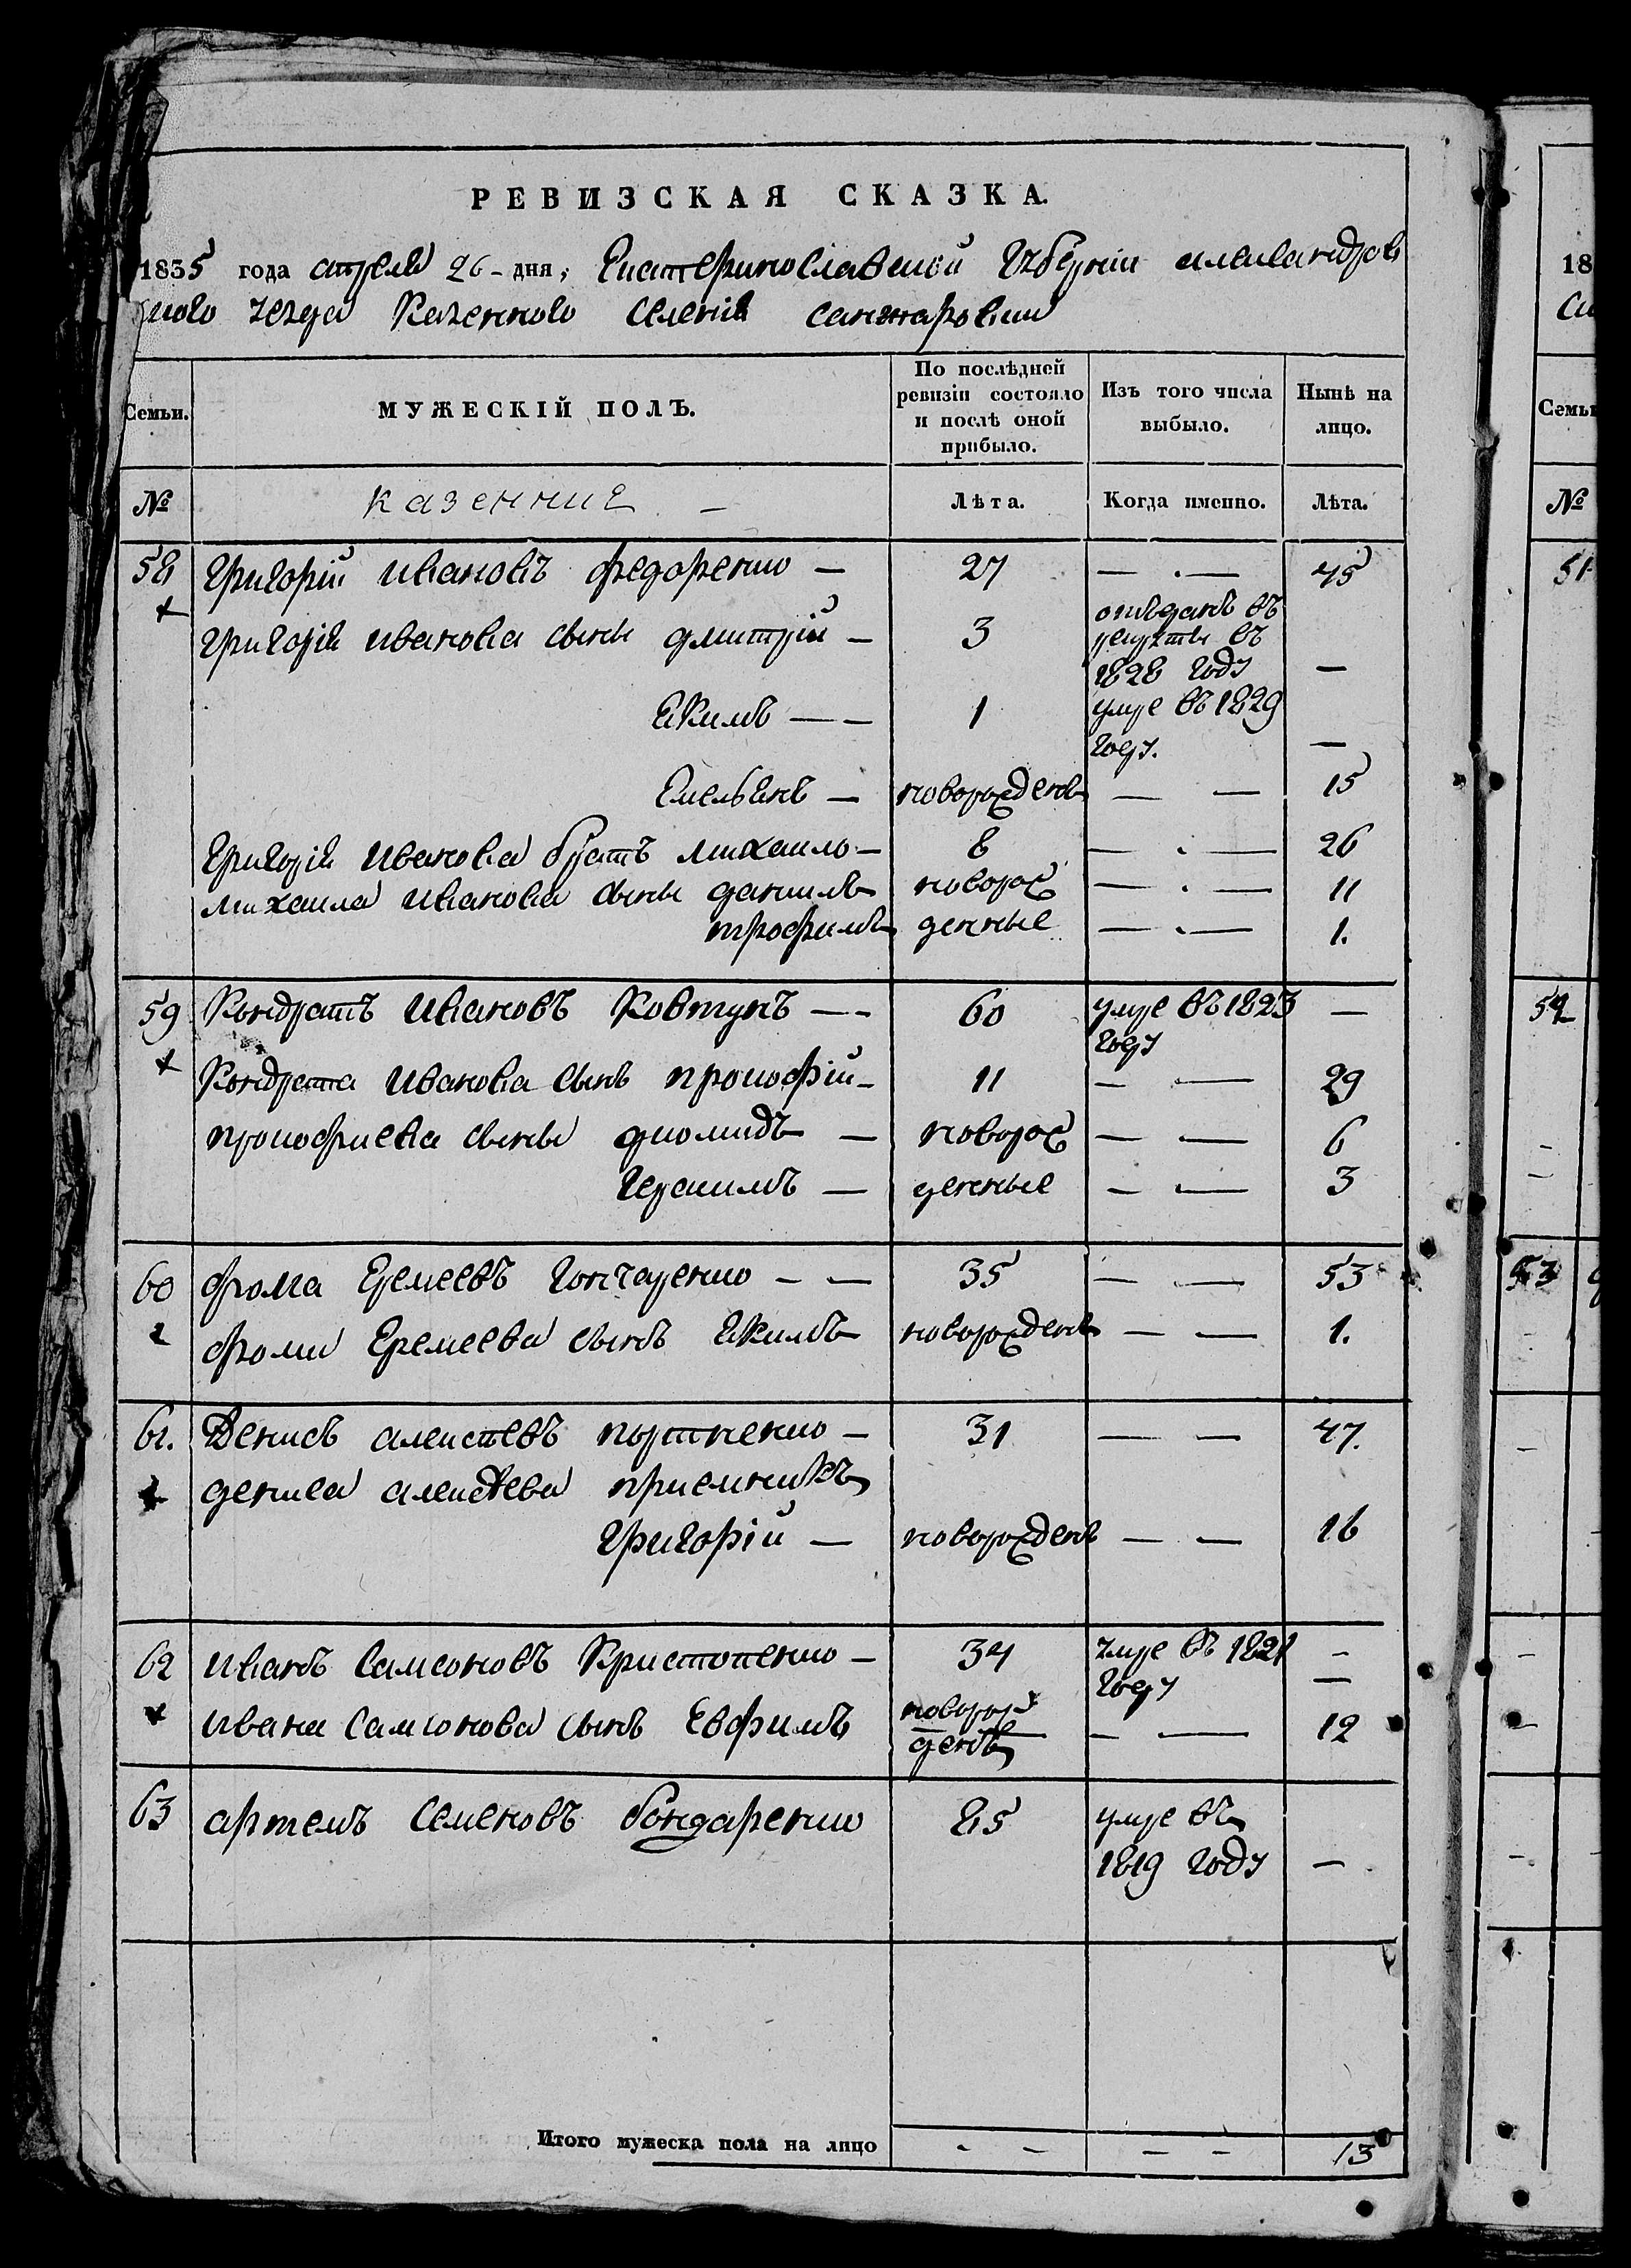 РЕВИЗСКАЯ СКАЗКА.
1835 года апреля 26 - дня, Екатеринославской Губернии александров
ского уезда Казенного Селения санжаровки
Семьи.
МУЖЕСКІЙ ПОЛЪ.
По послѣдней ревизіи состояло и послѣ оной прибыло.
Изъ того числа выбыло.
Нынѣ на лицо.
№ казенние — Лѣта. Когда именно. Лѣта.
58 григорій ивановъ федоренко — 27 — . — 45
григорія иванова сыны дмитрій — 3 отданъ въ
рекруты въ
1828 году —
Якимъ — — 1 умре въ 1829
году. —
Емельянъ — новорожденъ — — 15
григорія иванова братъ михаило — 8 — . — 26
михаила иванова сыны данилъ новорож — . — 11
трофимъ денные — . — 1.
59 Кондратъ ивановъ Ковтунъ — — 60 умре въ 1823 —
году
Кондрата иванова сынъ прокофій — 11 — — 29
прокофиева сыны диомидъ — новорож — — 6
Герасимъ — денные — — 3
60 фома Еремеевъ Гончаренко — — 35 — — 53
фоми Еремеева сынъ Якимъ новорожденъ — — 1.
61. Денисъ алексеевъ портненко — 31 — — 47.
дениса алексеева приемникъ
григорій — новорожденъ — — 16
62 иванъ Самсоновъ Христопенко — 34 умре въ 1821 —
году —
ивана Самсонова сынъ Евфимъ новорож
денъ — — 12
63 артемъ Семеновъ бондаренко 85 умре въ
1819 году —
Итого мужеска пола на лицо - - - - 13
18
Семьи
№
51
52
53